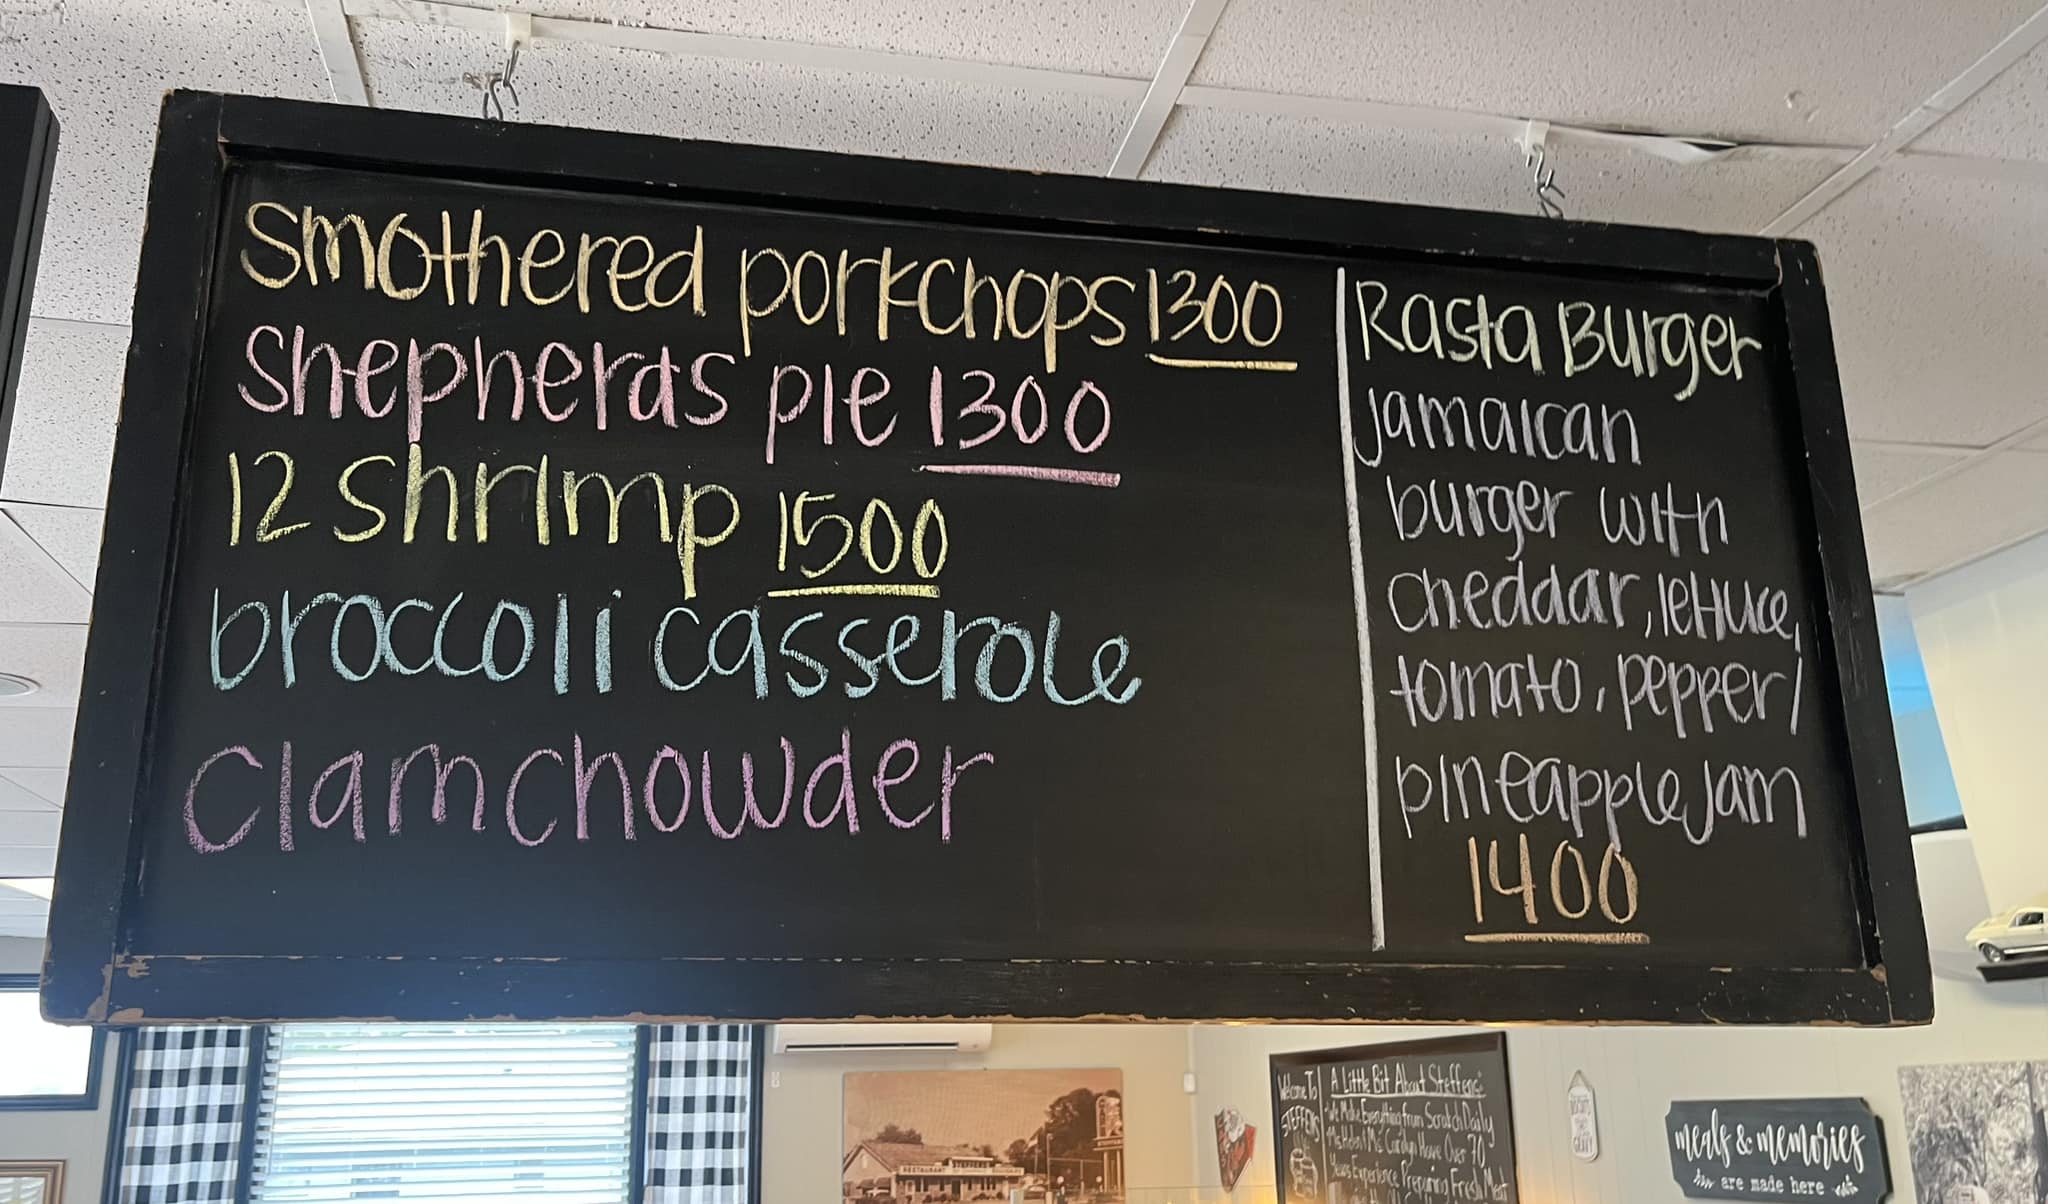 smothered porkchops 1300
shepherds pie 1300
12 shrimp 1500
broccoli casserole
clam chowder
Rasta Burger
jamaican
burger with
cheddar, lettuce,
tomato, pepper/
pineapple jam
1400
RESTAURANT STEFFENS
Welcome To
STEFFENS
A Little Bit About Steffens:
We Make Everything from Scratch Daily
Ms Helen & Ms Carolyn Have Over 70
Years Experience Preparing Fresh Meat
meals & memories
are made here